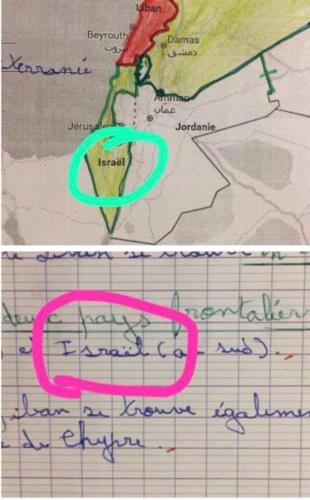 Liban
Beyrouth
بيروت
Damas
دمشق
Amman
عمان
Jérusale
Jordanie
Israël
deux pays frontalier
et Israël (au sud).
Liban se trouve égalemen
de Chypre.